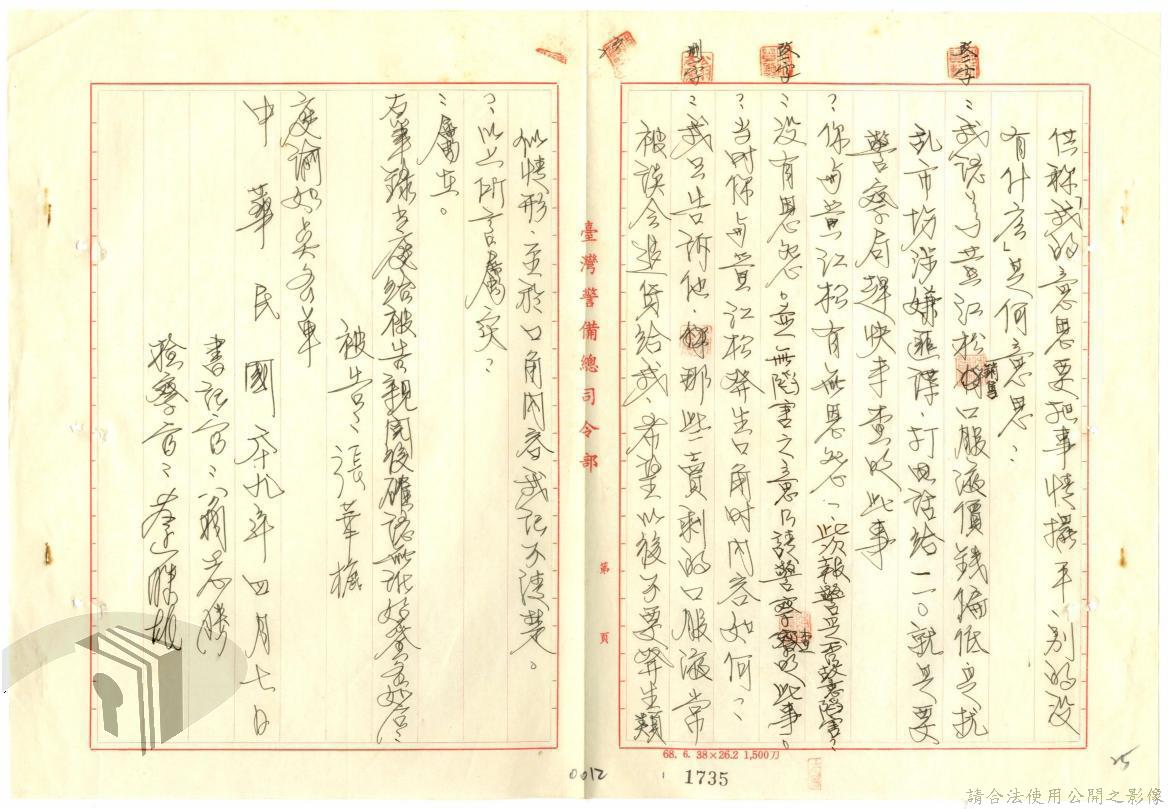 供称「我的意思要把事情擺平、別的沒
有什么」是何意思？
改一字
：我認為黃江松銷售口服液價錢偏低是擾
乱市場涉嫌匪諜、打电話給一一〇就是要
警察局趕快来查明此事
？你与黃江松有無恩怨？此次報警是否故意陷害？
改一字
：沒有恩怨。並無陷害之意乃請警察查明此事。
？当時你与黃江松發生口角時內容如何？
刪一字
：我只告訴他、那些賣剩的口服液常
被誤会退貨給我、希望以後不要發生類
臺灣警備總司令部
第 頁
似情形、至於口角內容我記不清楚。
？以上所言屬实？
：屬实。
右筆錄当庭給被告親閱後確認無訛始簽名如后：
被告：張華
庭諭如点名单
中華民國六九年四月七日
書記官：翁志
檢察官：
68. 6. 38×26.2 1,500刀
0012
1735
25
請合法使用公開之影像